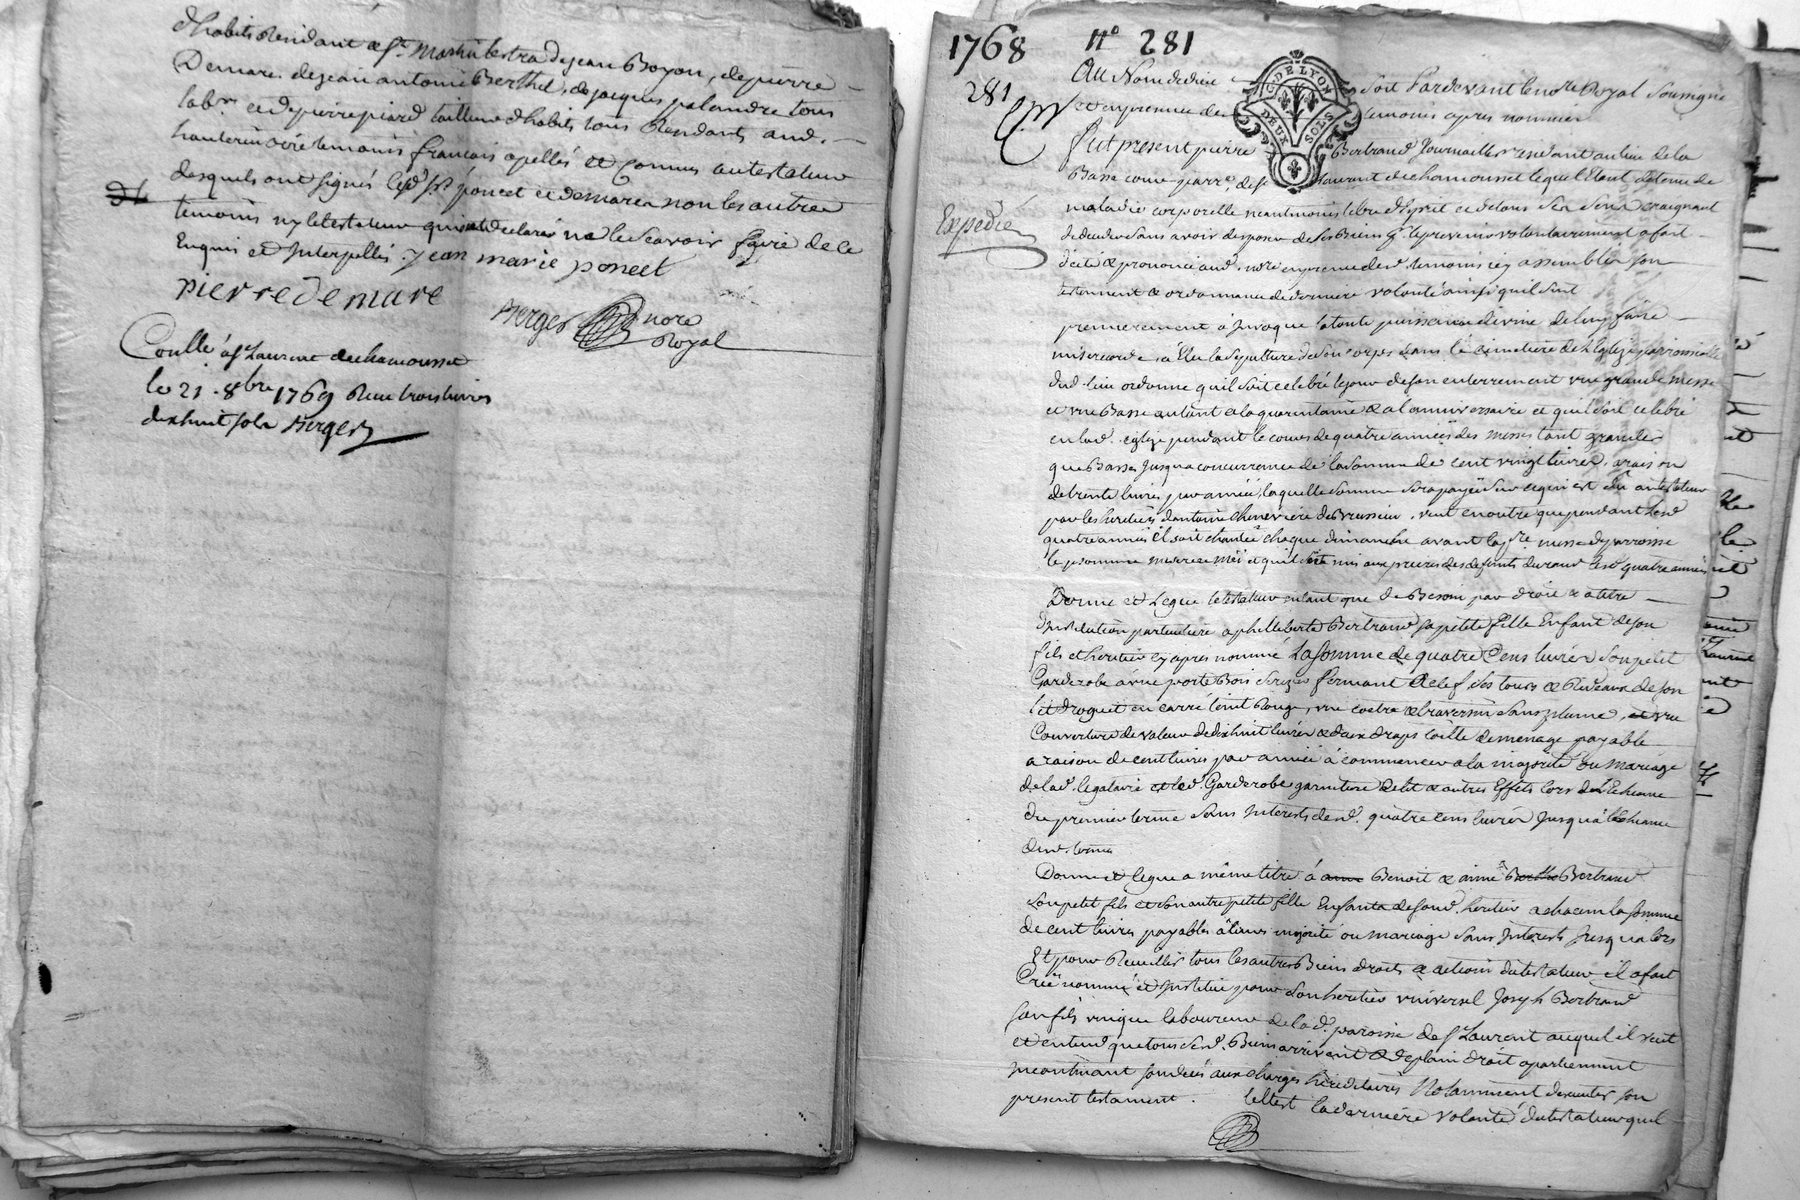 d'habits Residant a St. Martin lestra de jean Boyon, de pierre
Demare. de jean antoine Berthet, de jacques palandre tous
labrs. et de pierre piard tailleur d'habits tous Residants aud.
temoins francois apellés et Connus au testateur
desquels ont signés lesd. srs poncet et demare non les autres
temoins ny le testateur qui ont declarés ne le scavoir faire de ce
Enquis et Interpellés. jean marie poncet
pierre demare
Berger nore
Royal
Conllé a St Laurent de chamousset
le 21. 8bre 1769 Reçu trois livres
dix huit sols Berger
1768 N° 281
281
Au Nom de dieu soit Pardevant le nore Royal soussigné
et en presence des temoins apres nommés
fut present pierre Bertrand Journaillier residant au lieu de la
Basse cour parre. de st Laurent de chamousset lequel Etant detenu de
maladie corporelle neantmoins libre d'Esprit et de tous ses sens craignant
Expediée
de deceder sans avoir disposé de ses Biens qu. le previent volontairement a fait
dicté & prononcé aud. nore en presence desd. temoins icy assemblés son
testament & ordonnance de derniere volonté ainsi quil suit
premierement a Invoqué la toute puissance divine de luy faire
misericorde, a Elu la sepulture de son corps dans le cimetiere de l'Eglize parroissialle
dud. lieu ordonne quil soit celebré le jour de son enterrement une grande messe
et une Basse autant a la quarantaine & a l'anniversaire et quil soit celebré
en lad. eglize pendant le cours de quatre années des messes tant grandes
que Basses Jusqu'a concurrence de la somme de cent vingt livres, a raison
de trente livres par année, laquelle somme sera payée sur ce qui est du au testateur
par les heritiers d'antoine cheneviere de Brussieu. veut en outre que pendant lesd.
quatre années il soit chanté chaque dimanche avant la messe de parroisse
le pseaume miserere mei et quil soit mis aux prieres des defunts durant lesd. quatre années
Donne et Legue le testateur entant que de Besoin par droit & a titre
d'Institution particuliere a philliberte Bertrand sa petite fille Enfant de son
fils et heritier cy apres nommé La somme de quatre Cens livres son petit
Garderobe a une porte Bois Serizier fermant a Clef, les tours & Rideaux de son
lit droguet en carré teint Rouge, une coetre & traversin sans plume, et une
Couverture de valeur de dix huit livres & deux draps toille de menage payable
a raison de cent livres par année a commencer a la majorité ou mariage
de lad. legataire et led. Garderobe garniture de lit & autres Effets lors de l'Echeance
du premier terme sans Interests desd. quatre cens livres Jusqu'a l'echeance
desd. termes
Donne et legue a même titre á Benoit & aimé Bertrand
son petit fils et son autre petite fille Enfants de sond. heritier a chacun la somme
de cent livres payables a leurs majorité ou mariage sans Interests Jusqu'alors
Et pour Recueillir tous les autres Biens droits & actions du testateur il a fait
Créé nommé et Institué pour son heritier universel Joseph Bertrand
son fils unique laboureur de lad. paroisse de St Laurent auquel il veut
et entend que tous sesd. Biens arrivent & de plain droit apartiennent
Incontinant son decés aux charges hereditaires Notamment d'executer son
present testament. telle est la derniere volonté du testateur quil